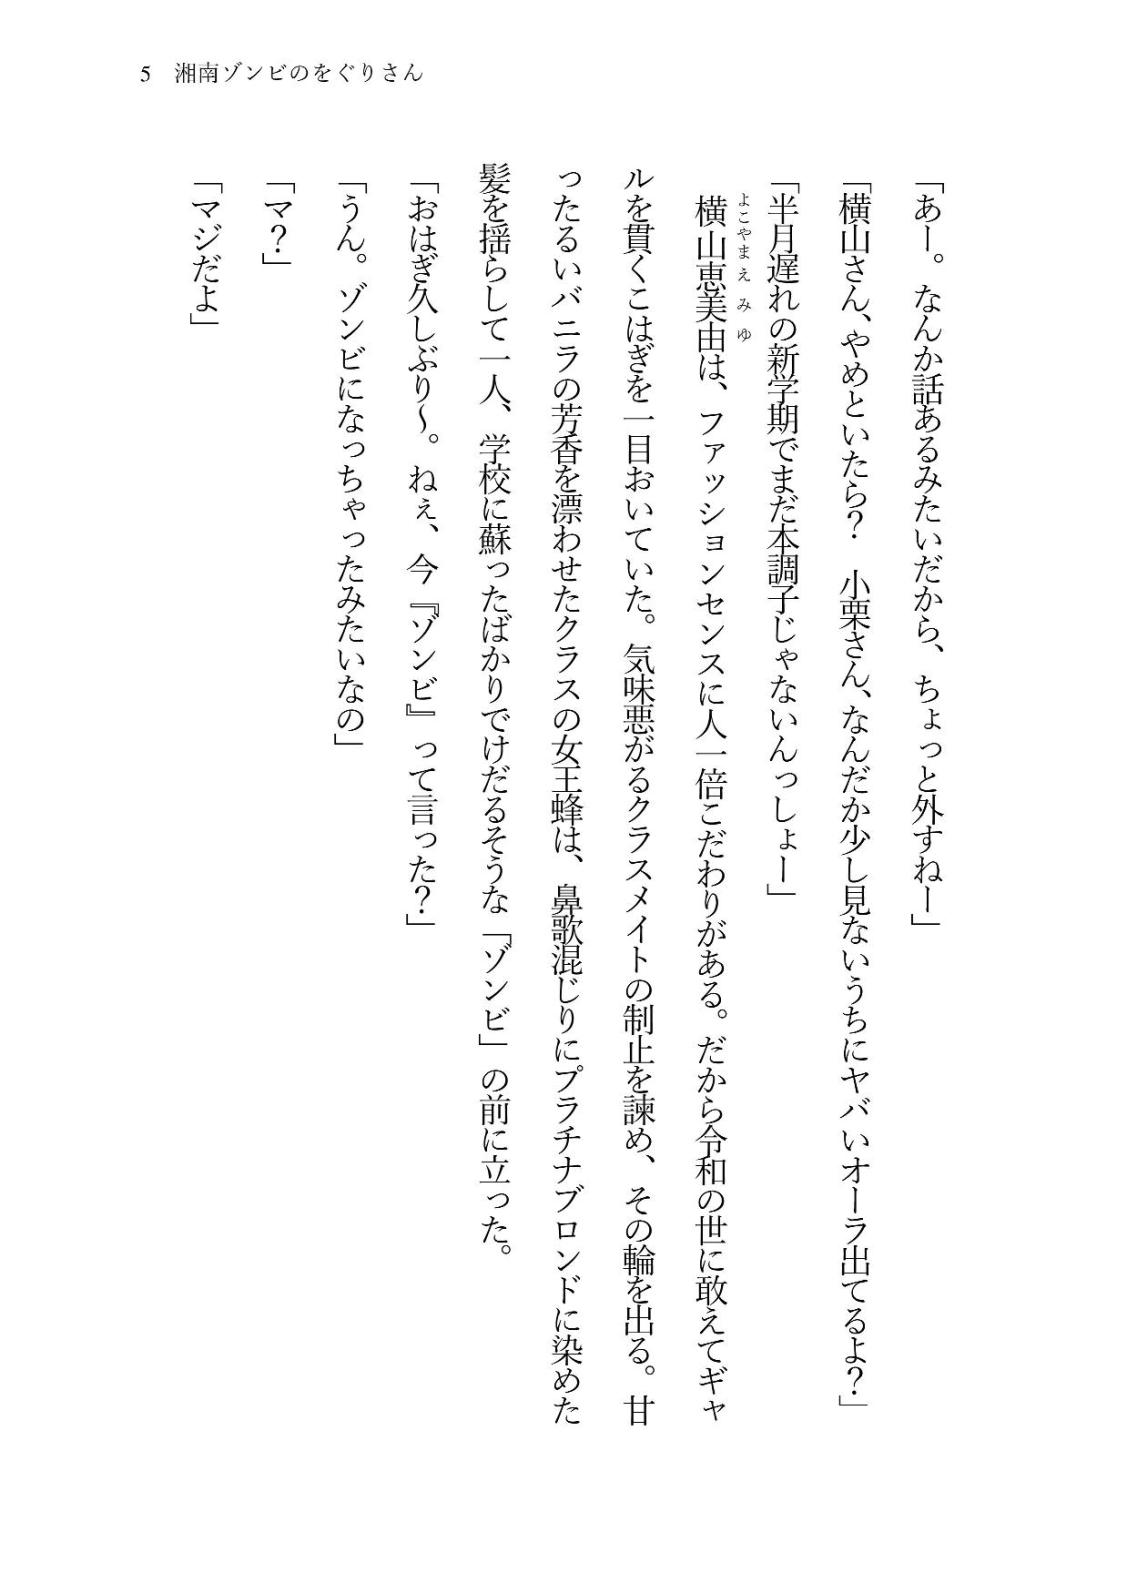 5 湘南ゾンビのをぐりさん
「あー。なんか話あるみたいだから、ちょっと外すねー」
「横山さん、やめといたら？　小栗さん、なんだか少し見ないうちにヤバいオーラ出てるよ？」
「半月遅れの新学期でまだ本調子じゃないんっしょー」
よこやまえみゆ
　横山恵美由は、ファッションセンスに人一倍こだわりがある。だから令和の世に敢えてギャ
ルを貫くこはぎを一目おいていた。気味悪がるクラスメイトの制止を諫め、その輪を出る。甘
ったるいバニラの芳香を漂わせたクラスの女王蜂は、鼻歌混じりにプラチナブロンドに染めた
髪を揺らして一人、学校に蘇ったばかりでけだるそうな「ゾンビ」の前に立った。
「おはぎ久しぶり〜。ねぇ、今『ゾンビ』って言った？」
「うん。ゾンビになっちゃったみたいなの」
「マ？」
「マジだよ」